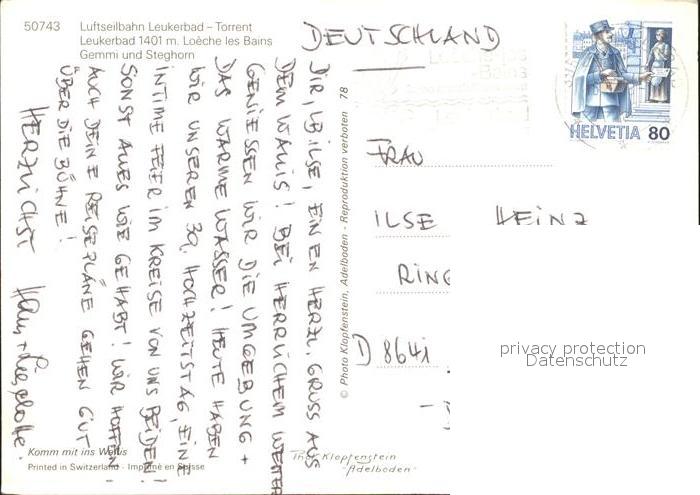 50743 Luftseilbahn Leukerbad – Torrent
Leukerbad 1401 m. Loèche les Bains
Gemmi und Steghorn
DEUTSCHLAND
HELVETIA 80
DIR, LB ILSE, EINEN HERZL. GRUSS AUS
DEM WALLIS! BEI HERRLICHEM WETTER
GENIESSEN WIR DIE UMGEBUNG +
DAS WARME WASSER! HEUTE HABEN
WIR UNSEREN 30. HOCHZEITSTAG, EINE
INTIME FEIER IM KREISE VON UNS BEIDEN!
SONST ALLES WIE GEHABT! WIR HOFFEN,
AUCH DEINE REISEPLÄNE GEHEN GUT
ÜBER DIE BÜHNE!
HERZLICHST
© Photo Klopfenstein, Adelboden - Reproduktion verboten 78
FRAU
ILSE HEINZ
RING
D 8641
privacy protection
Datenschutz
Komm mit ins Wallis
Printed in Switzerland - Imprimé en Suisse
Photo Klopfenstein
Adelboden